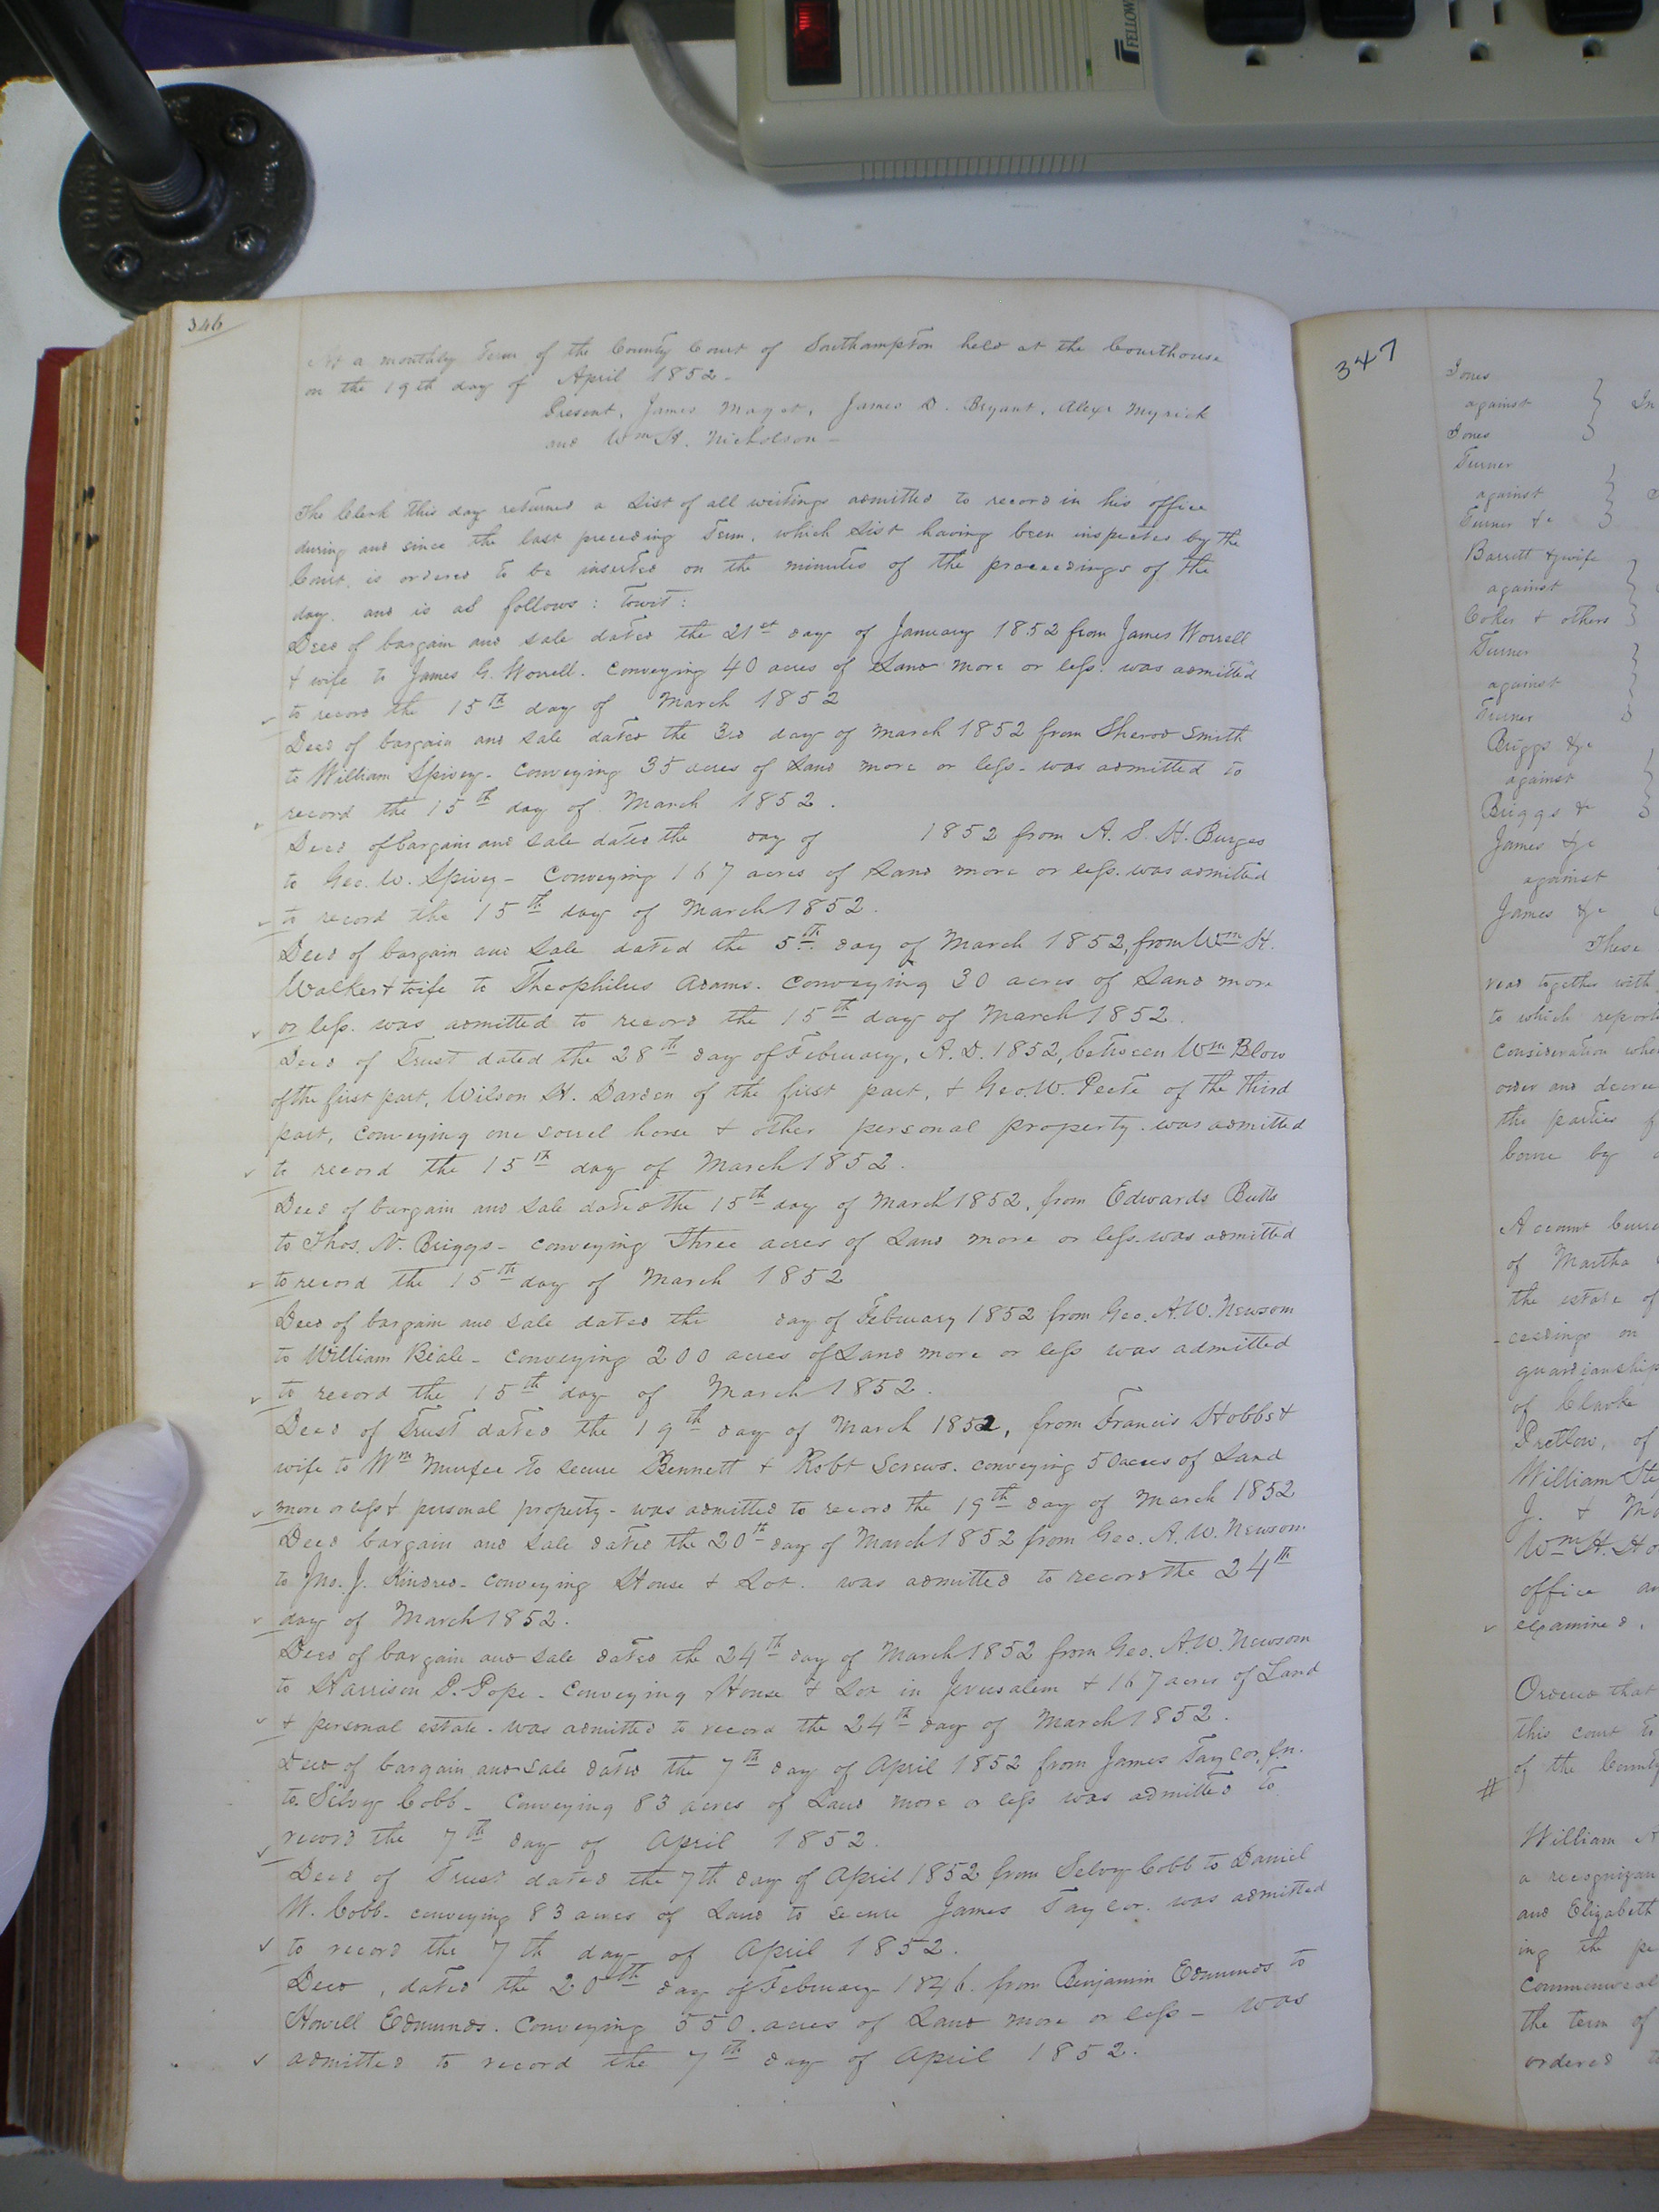 FELLOW
346
At a monthly Term of the County Court of Southampton held at the Courthouse
on the 19th day of April 1852 -
Present, James Maget, James D. Bryant, Alexr Myrick
and Wm H. Nicholson -
The Clerk this day returned a List of all writings admitted to record in his office
during and since the last preceding Term, which List having been inspected by the
Court, is ordered to be inserted on the minutes of the proceedings of the
day, and is as follows: Towit:
Deed of bargain and sale dated the 21st day of January 1852 from James Worrell
+ wife to James G. Worrell. Conveying 40 acres of Land more or less. was admitted
to record the 15th day of March 1852
Deed of bargain and sale dated the 3rd day of March 1852 from Sherod Smith
to William Spivey - Conveying 35 acres of Land more or less - was admitted to
record the 15th day of March 1852.
Deed of bargain and sale dated the day of 1852 from A. S. H. Burges
to Geo. W. Spivey - Conveying 167 acres of Land more or less. was admitted
to record the 15th day of March 1852.
Deed of bargain and Sale dated the 5th day of March 1852, from Wm H.
Walker + wife to Theophilus Adams. Conveying 30 acres of Land more
or less. was admitted to record the 15th day of March 1852.
Deed of Trust dated the 28th day of February, A. D. 1852, between Wm Blow
of the first part, Wilson H. Darden of the first part, + Geo. W. Peete of the third
part, conveying one sorrel horse + other personal property. was admitted
to record the 15th day of March 1852.
Deed of bargain and sale dated the 15th day of March 1852, from Edwards Butts
to Thos. N. Briggs - conveying Three acres of Land more or less. was admitted
to record the 15th day of March 1852
Deed of bargain and sale dated the day of February 1852 from Geo. A. W. Newsom
to William Beale - conveying 200 acres of Land more or less was admitted
to record the 15th day of March 1852.
Deed of Trust dated the 19th day of March 1852, from Francis Hobbs +
wife to Wm Murfee to secure Bennett + Robt Screws. conveying 50 acres of Land
more or less + personal property - was admitted to record the 19th day of March 1852
Deed bargain and sale dated the 20th day of March 1852 from Geo. A. W. Newsom
to Jno. J. Kindred - conveying House + Lot. was admitted to record the 24th
day of March 1852.
Deed of bargain and sale dated the 24th day of March 1852 from Geo. A. W. Newsom
to Harrison P. Pope - Conveying House + Lot in Jerusalem + 167 acres of Land
+ personal estate. was admitted to record the 24th day of March 1852.
Deed of bargain and sale dated the 7th day of April 1852 from James Taylor, Jn.
to Selvy Cobb - Conveying 83 acres of Land more or less was admitted to
record the 7th day of April 1852.
Deed of Trust dated the 7th day of April 1852 from Selvy Cobb to Daniel
W. Cobb - conveying 83 acres of Land to secure James Taylor. was admitted
to record the 7th day of April 1852.
Deed, dated the 20th day of February 1846. from Benjamin Edmunds to
Howell Edmunds. Conveying 550. acres of Land more or less - was
admitted to record the 7th day of April 1852.
347
Jones
against
Jones
Turner
against
Turner &c
Barrett & wife
against
Coker + others
Turner
against
Turner
Briggs &c
against
Briggs &c
James &c
against
James &c
These
read together with
to which
consideration
order and decree
the parties
come by
Account
of Martha
the estate of
-ceedings on
guardianship
of Clarke
Pretlow, of
William
J. +
Wm H.
office
examined.
Ordered that
this court
of the County
#
William
a
and Elizabeth
ing the
the term of
ordered